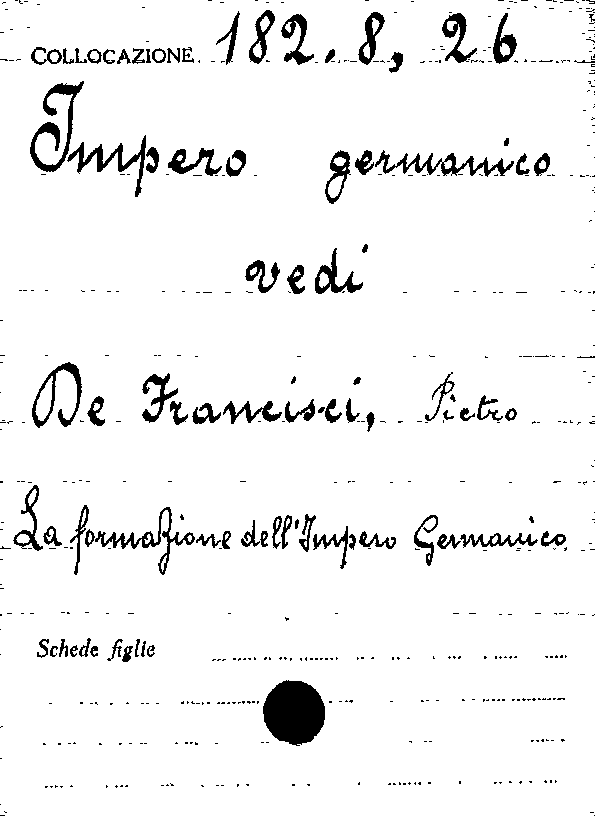 COLLOCAZIONE 182.8, 26
Impero germanico
vedi
De Francisci, Pietro
La formazione dell'Impero Germanico
Schede figlie